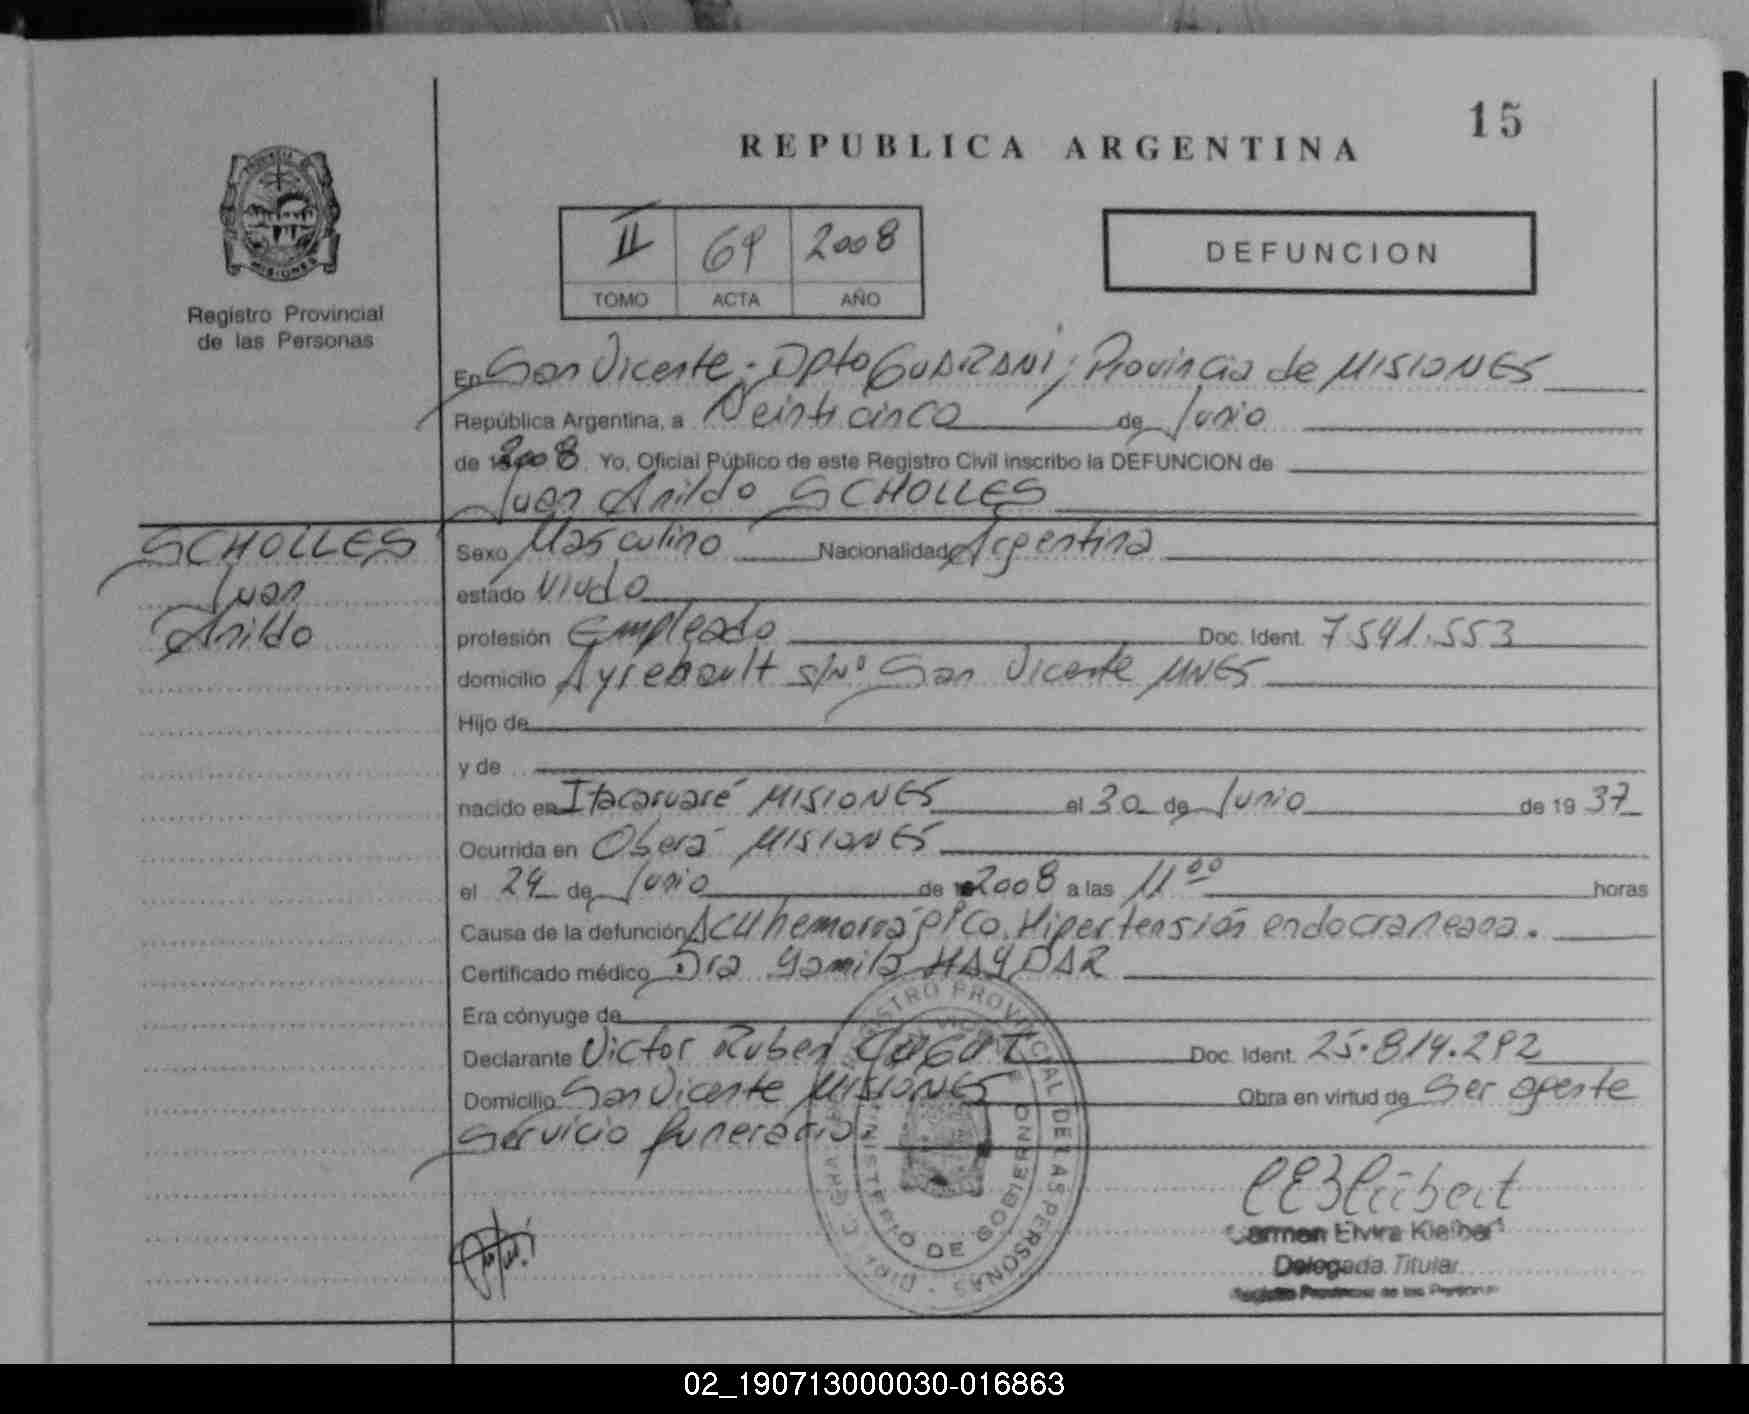 15
REPUBLICA ARGENTINA
II 69 2008
TOMO ACTA AÑO
DEFUNCION
Registro Provincial
de las Personas
En San Vicente; Dpto GUARANI; Provincia de MISIONES
República Argentina, a Veinticinco de Junio
de 2008. Yo, Oficial Público de este Registro Civil inscribo la DEFUNCION de
Juan Anildo SCHOLLES
SCHOLLES
Juan
Anildo
Sexo Masculino Nacionalidad Argentina
estado Viudo
profesión Empleado Doc. Ident. 7.541.553
domicilio Ayrebault s/Nº San Vicente MNES
Hijo de
y de
nacido en Itacaruaré MISIONES el 30 de Junio de 1937
Ocurrida en Oberá MISIONES
el 24 de Junio de 2008 a las 11 00 horas
Causa de la defunción ACV hemorrágico. Hipertensión endocraneana.
Certificado médico Dra Yamila HAYDAR
Era cónyuge de
Declarante Victor Ruben Doc. Ident. 25.814.292
Domicilio San Vicente MISIONES Obra en virtud de Ser agente
Servicio funerario
REGISTRO PROVINCIAL DE LAS PERSONAS
MINISTERIO DE GOBIERNO
Carmen Elvira
Delegada Titular
Registro Provincial de las Personas
02_190713000030-016863